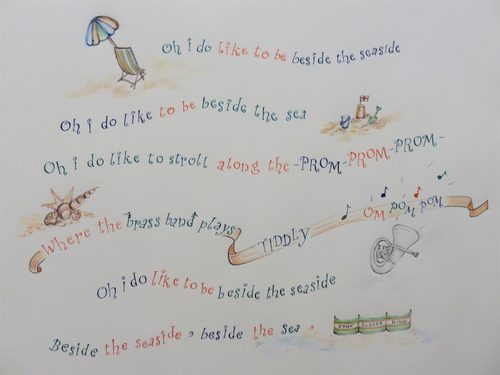 Oh i do like to be beside the seaside
Oh i do like to be beside the sea
Oh i do like to stroll along the -PROM-PROM-PROM-
Where the brass band plays TIDDLY OM POM POM
Oh i do like to be beside the seaside
Beside the seaside, beside the sea,
GLOVER KIND